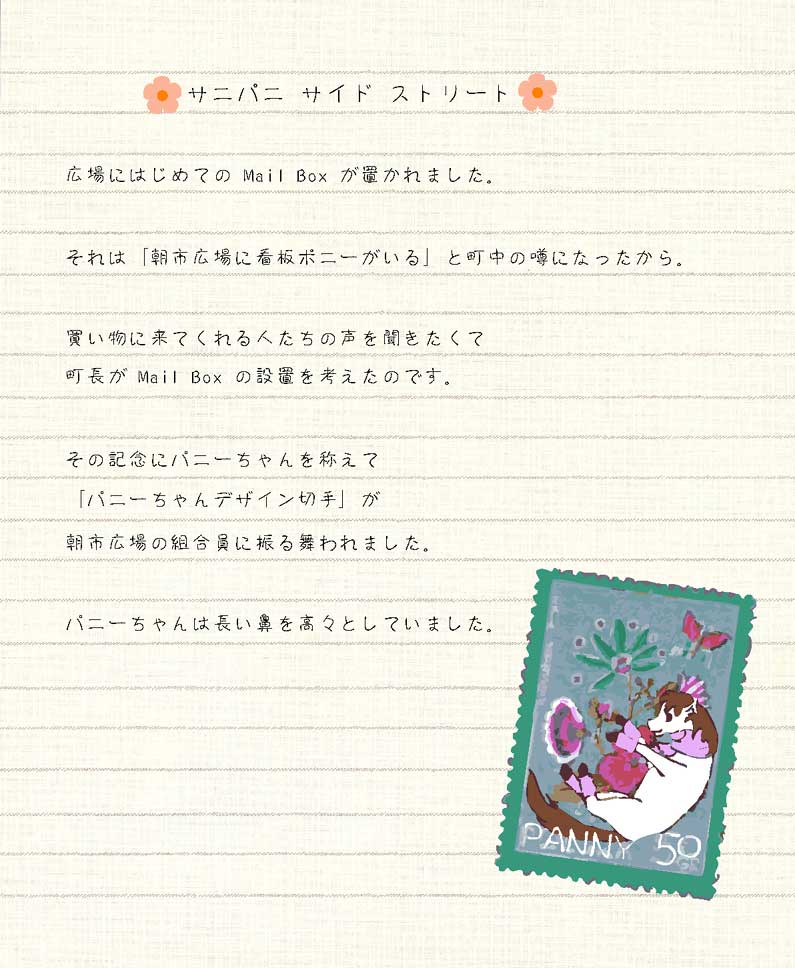 サニパニ サイド ストリート
広場にはじめての Mail Box が置かれました。
それは「朝市広場に看板ポニーがいる」と町中の噂になったから。
買い物に来てくれる人たちの声を聞きたくて
町長が Mail Box の設置を考えたのです。
その記念にパニーちゃんを称えて
「パニーちゃんデザイン切手」が
朝市広場の組合員に振る舞われました。
パニーちゃんは長い鼻を高々としていました。
PANNY 50